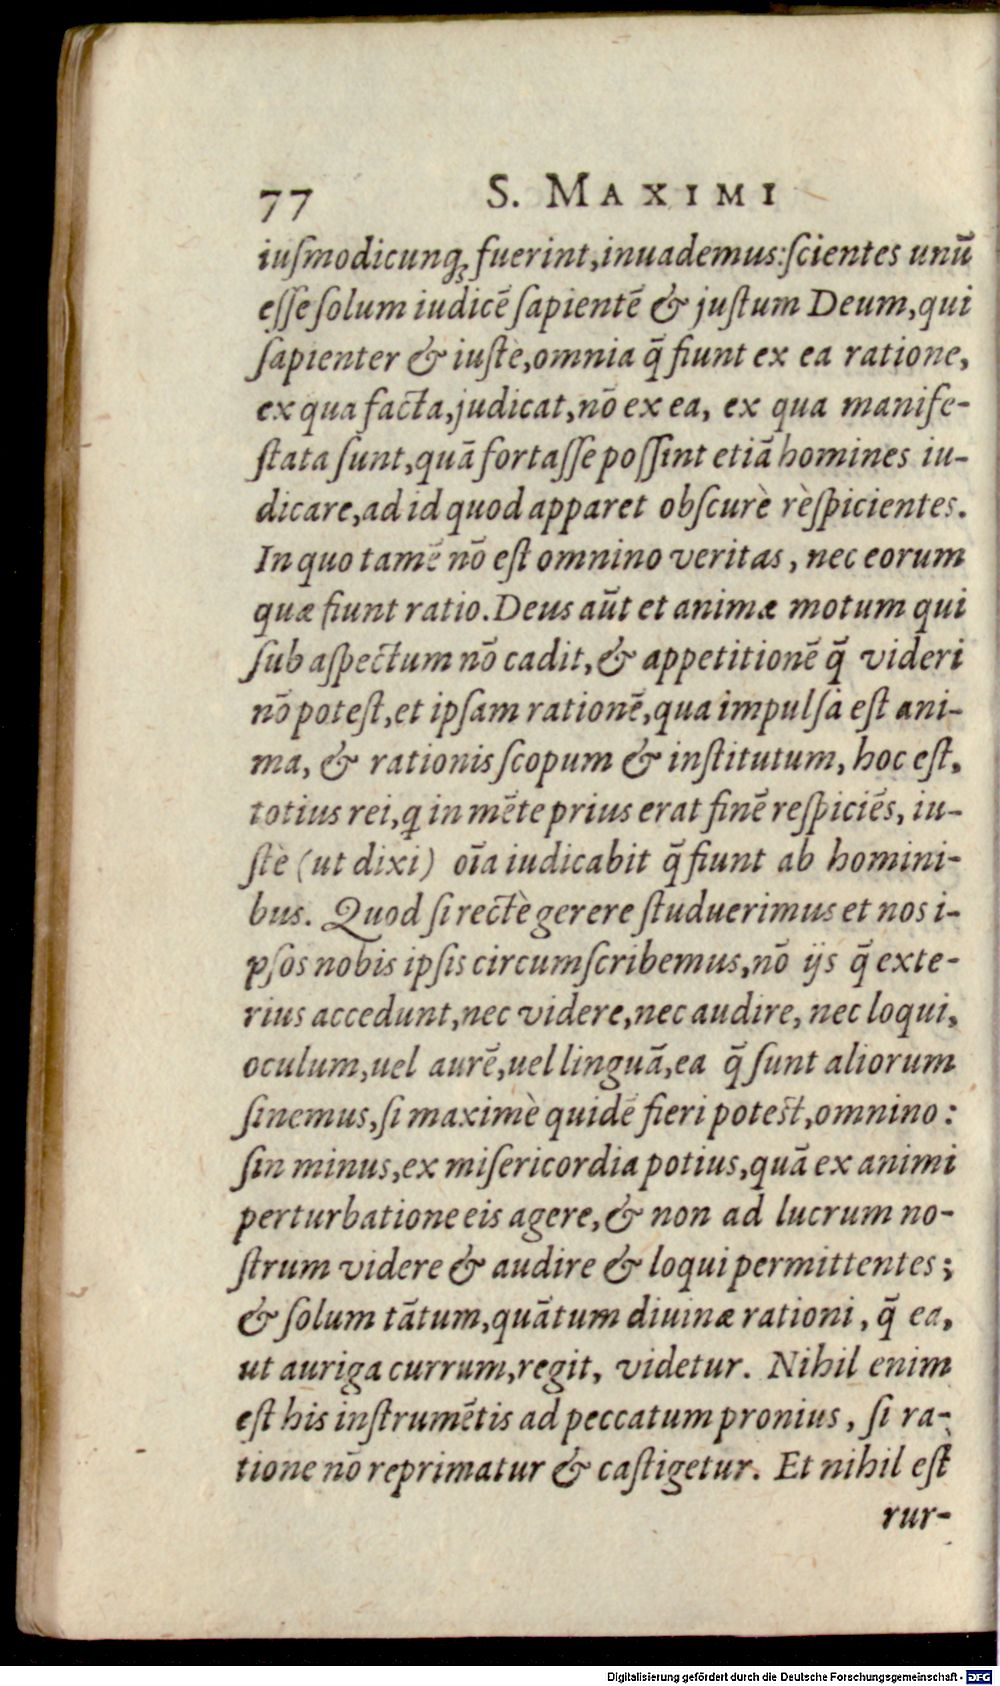 77 S. MAXIMI
iuſmodicunq; fuerint, inuademus: ſcientes unū
eſſe ſolum iudicē ſapientē & juſtum Deum, qui
ſapienter & iuſtè, omnia q̄ fiunt ex ea ratione,
ex qua facta, judicat, nō ex ea, ex qua manife-
ſtata ſunt, quā fortaſſe poſſint etiā homines iu-
dicare, ad id quod apparet obſcurè rèſpicientes.
In quo tamē nō eſt omnino veritas, nec eorum
quæ fiunt ratio. Deus aūt et animæ motum qui
ſub aſpectum nō cadit, & appetitionē q̄ videri
nō poteſt, et ipſam rationē, qua impulſa eſt ani-
ma, & rationis ſcopum & inſtitutum, hoc eſt,
totius rei, q in mēte prius erat finē reſpiciēs, iu-
ſtè (ut dixi) oīa iudicabit q̄ fiunt ab homini-
bus. Quod ſi rectè gerere ſtuduerimus et nos i-
pſos nobis ipſis circumſcribemus, nō ijs q̄ exte-
rius accedunt, nec videre, nec audire, nec loqui,
oculum, uel aurē, uel linguā, ea q̄ ſunt aliorum
ſinemus, ſi maximè quidē fieri poteſt, omnino:
ſin minus, ex miſericordia potius, quā ex animi
perturbatione eis agere, & non ad lucrum no-
ſtrum videre & audire & loqui permittentes;
& ſolum tātum, quātum diuinæ rationi, q̄ ea,
ut auriga currum, regit, videtur. Nihil enim
eſt his inſtrumētis ad peccatum pronius, ſi ra-
tione nō reprimatur & caſtigetur. Et nihil eſt
rur-
Digitalisierung gefördert durch die Deutsche Forschungsgemeinschaft - DFG